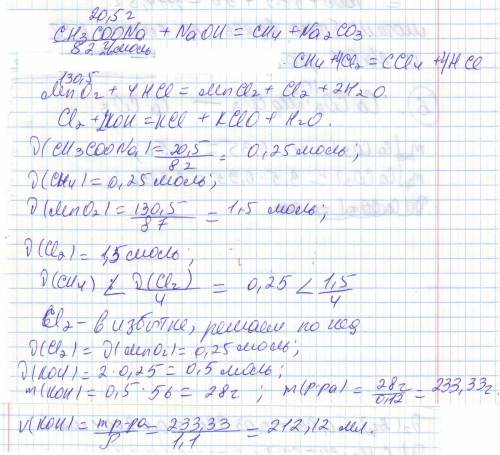 20,5 г
CH3COONa + NaOH = CH4 + Na2CO3
82 г/моль
CH4 + 4Cl2 = CCl4 + 4HCl
130,5
MnO2 + 4HCl = MnCl2 + Cl2 + 2H2O.
Cl2 + 2KOH = KCl + KClO + H2O.
ν(CH3COONa) = 20,5/82 = 0,25 моль;
ν(CH4) = 0,25 моль;
ν(MnO2) = 130,5/87 = 1,5 моль;
ν(Cl2) = 1,5 моль;
ν(CH4) < ν(Cl2)/4 = 0,25 < 1,5/4
Cl2 - в избытке, решаем по нед.
ν(Cl2) = ν(MnO2) = 0,25 моль;
ν(KOH) = 2·0,25 = 0,5 моль;
m(KOH) = 0,5·56 = 28 г; m(р-ра) = 28г/0,12 = 233,33 г.
V(KOH) = mр-ра/ρ = 233,33/1,1 = 212,12 мл.